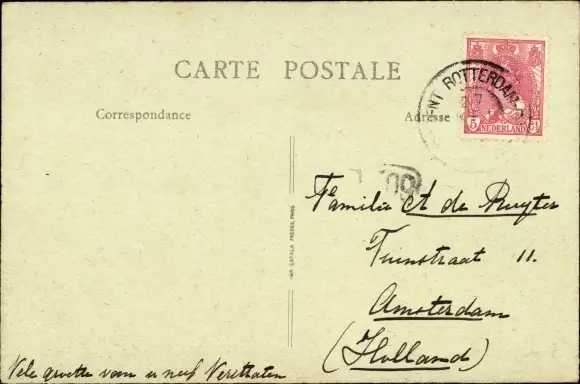 CARTE POSTALE
Correspondance
Adresse
ROTTERDAM
5
NEDERLAND
IMP. CATALA FRÈRES, PARIS
Familie A de Ruyter
Tuinstraat 11.
Amsterdam
(Holland)
Vele groeten van u neef